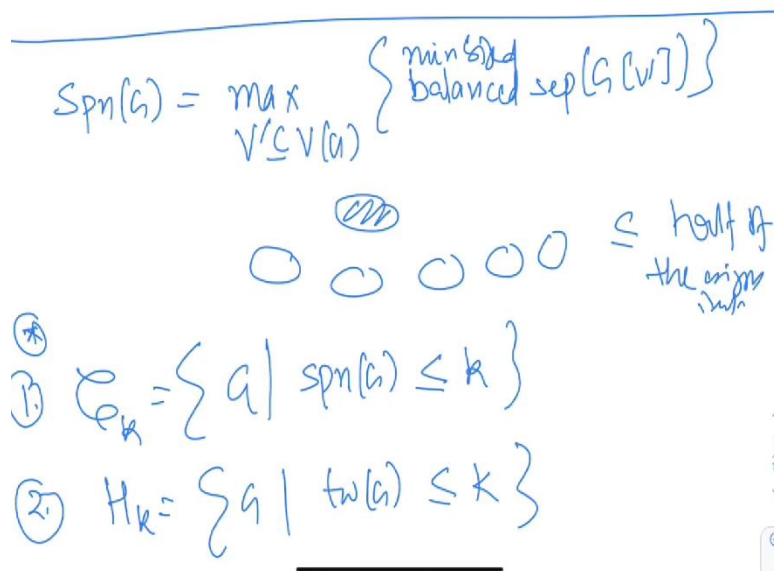 Spn(G) = max V'⊆V(G) { min sized balanced sep(G[V']) }
≤ half of
the
1. 𝒞_k = { G | spn(G) ≤ k }
2. H_k = { G | tw(G) ≤ k }